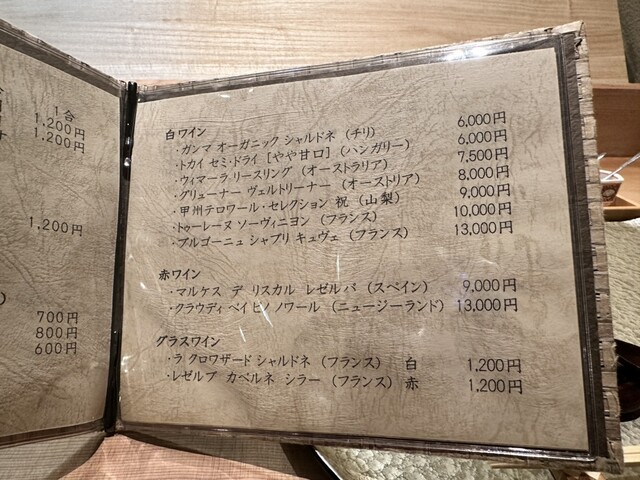 1合
1,200円
1,200円
1,200円
700円
800円
600円
白ワイン
・ガンマ オーガニック シャルドネ (チリ) 6,000円
・トカイ セミ・ドライ [やや甘口] (ハンガリー) 6,000円
・ウィマーラ リースリング (オーストラリア) 7,500円
・グリューナー ヴェルトリーナー (オーストリア) 8,000円
・甲州テロワール・セレクション 祝 (山梨) 9,000円
・トゥーレーヌ ソーヴィニヨン (フランス) 10,000円
・ブルゴーニュ シャブリ キュヴェ (フランス) 13,000円
赤ワイン
・マルケス デ リスカル レゼルバ (スペイン) 9,000円
・クラウディ ベイ ピノ ノワール (ニュージーランド) 13,000円
グラスワイン
・ラ クロワザード シャルドネ (フランス) 白 1,200円
・レゼルブ カベルネ シラー (フランス) 赤 1,200円